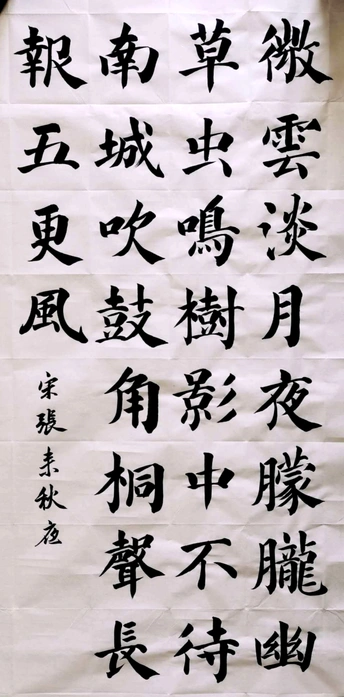 微雲淡月夜朦朧幽
草虫鳴樹影中不待
南城吹鼓角桐聲長
報五更風
宋張耒秋夜